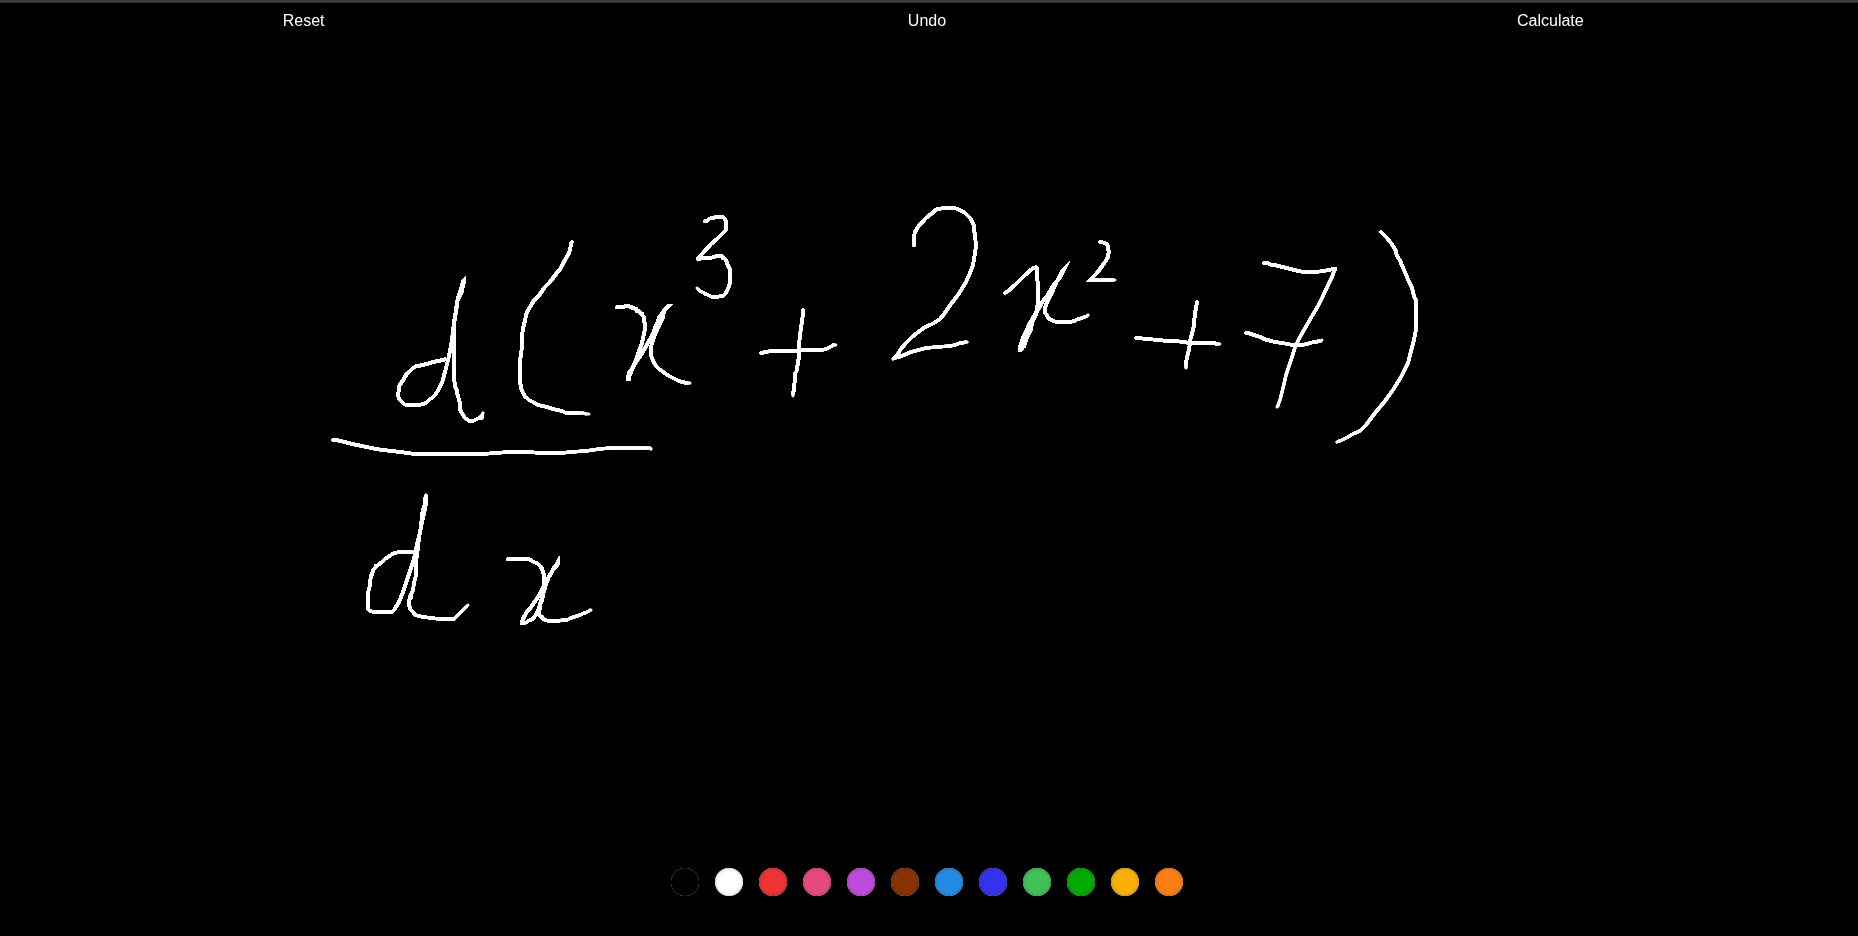 Reset Undo Calculate
d(x³+2x²+7)
dx